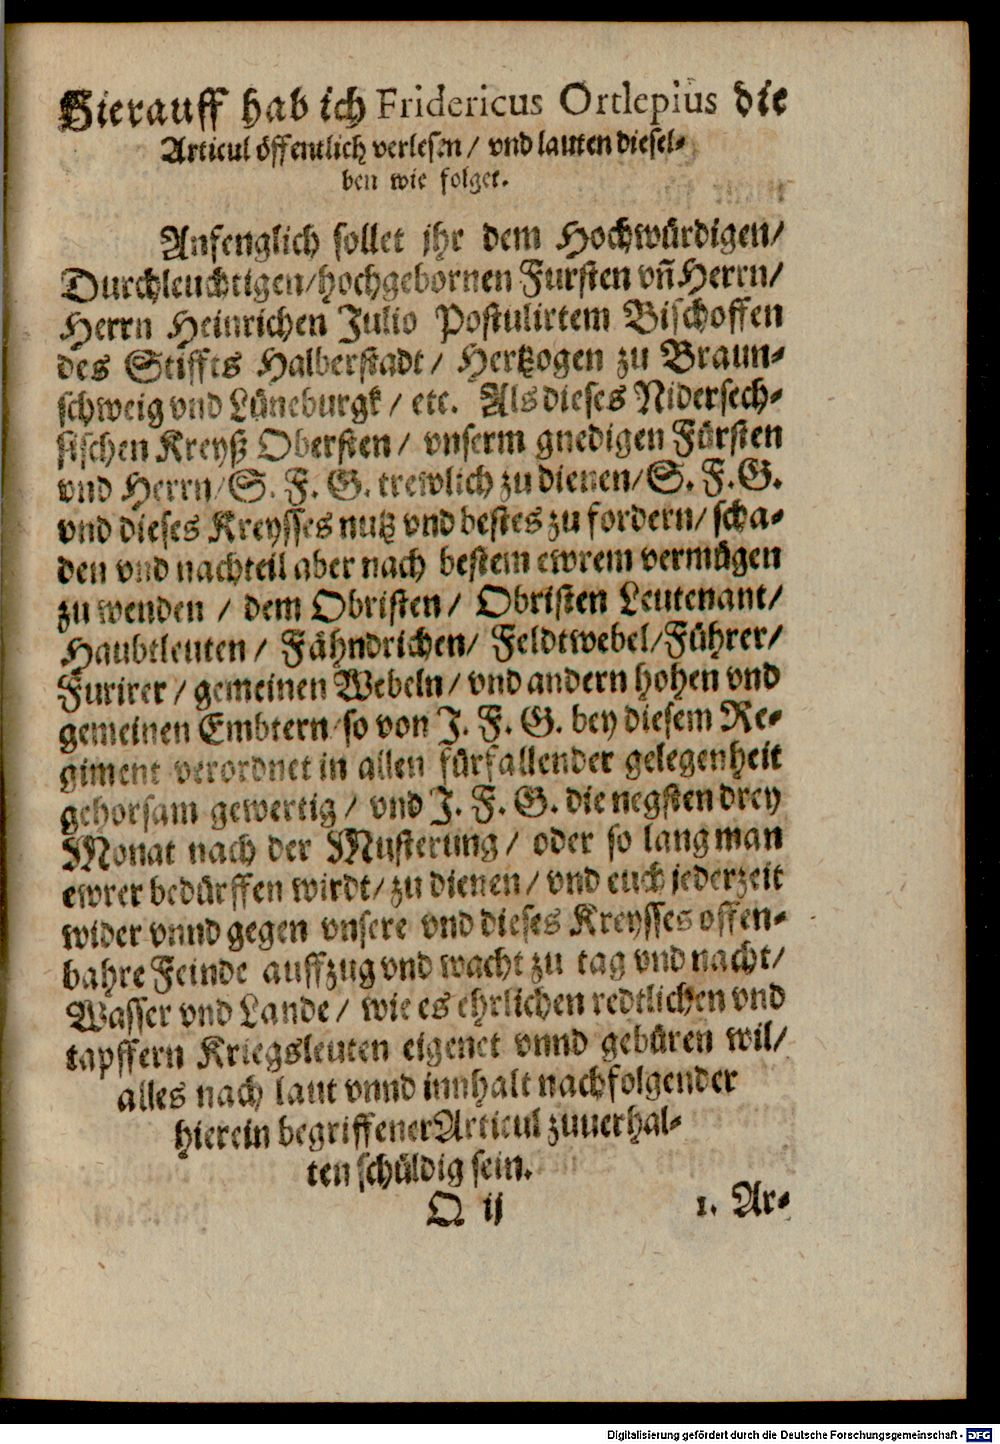 Hierauff hab ich Fridericus Ortlepius die
Articul öffentlich verlesen / vnd lauten diesel-
ben wie folget.
Anfenglich sollet jhr dem Hochwürdigen /
Durchleuchtigen / hochgebornen Fursten vn̄ Herrn /
Herrn Heinrichen Julio Postulirtem Bischoffen
des Stiffts Halberstadt / Hertzogen zu Braun-
schweig vnd Lüneburgk / etc. Als dieses Nidersech-
sischen Kreyß Obersten / vnserm gnedigen Fürsten
vnd Herrn / S. F. G. trewlich zu dienen / S. F. G.
vnd dieses Kreysses nutz vnd bestes zu fordern / scha-
den vnd nachteil aber nach bestem ewrem vermügen
zu wenden / dem Obristen / Obristen Leutenant /
Haubtleuten / Fähndrichen / Feldtwebel / Führer /
Furirer / gemeinen Webeln / vnd andern hohen vnd
gemeinen Embtern / so von J. F. G. bey diesem Re-
giment verordnet in allen fürfallender gelegenheit
gehorsam gewertig / vnd J. F. G. die negsten drey
Monat nach der Musterung / oder so lang man
ewrer bedürffen wirdt / zu dienen / vnd euch jederzeit
wider vnnd gegen vnsere vnd dieses Kreysses offen-
bahre Feinde auffzug vnd wacht zu tag vnd nacht /
Wasser vnd Lande / wie es ehrlichen redtlichen vnd
tapffern Kriegsleuten eigenet vnnd gebüren wil /
alles nach laut vnnd innhalt nachfolgender
hierein begriffener Articul zuuerhal-
ten schüldig sein.
Q ij 1. Ar-
Digitalisierung gefördert durch die Deutsche Forschungsgemeinschaft - DFG